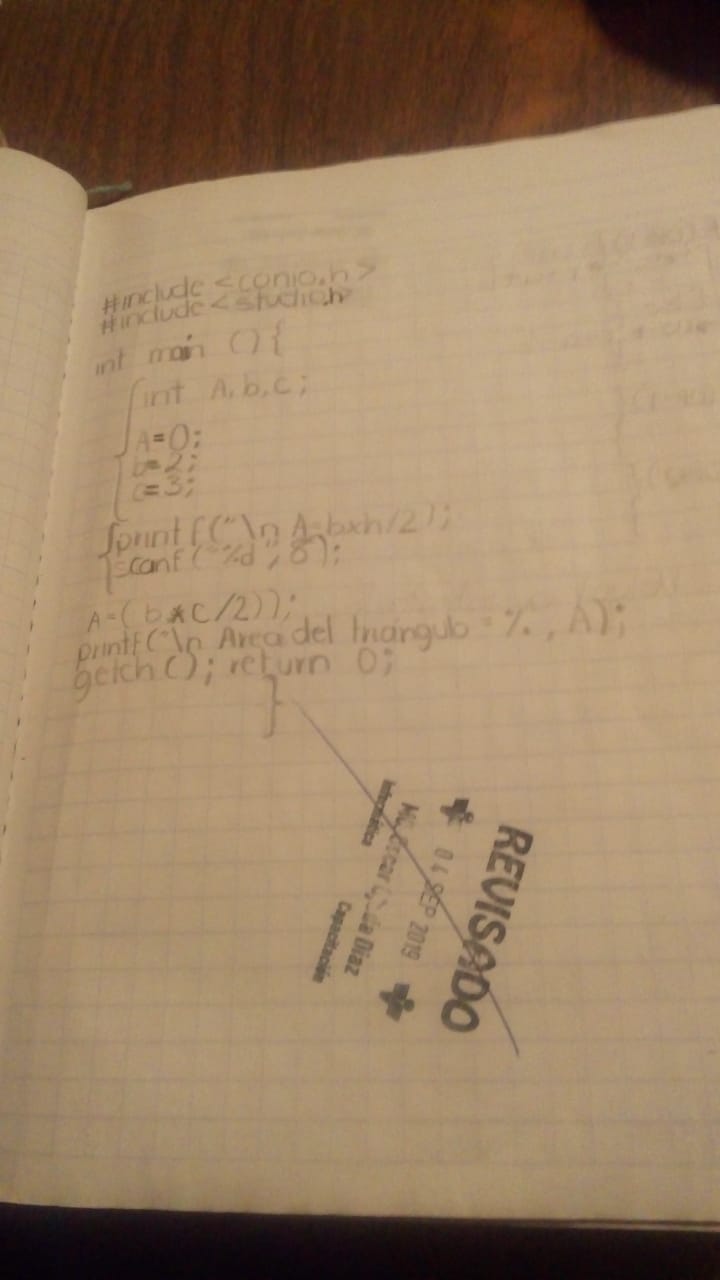 #include <conio.h>
#include <studio.h>
int main () {
int A, b, c;
A=0;
b=2;
c=3;
printf("\n A=bxh/2);
scanf ("%d", &);
A=(b*c/2));
printf("\n Area del triangulo = %. , A);
getch(); return 0;
}
REVISADO
04 SEP 2019
Diaz
Informática
Capacitación